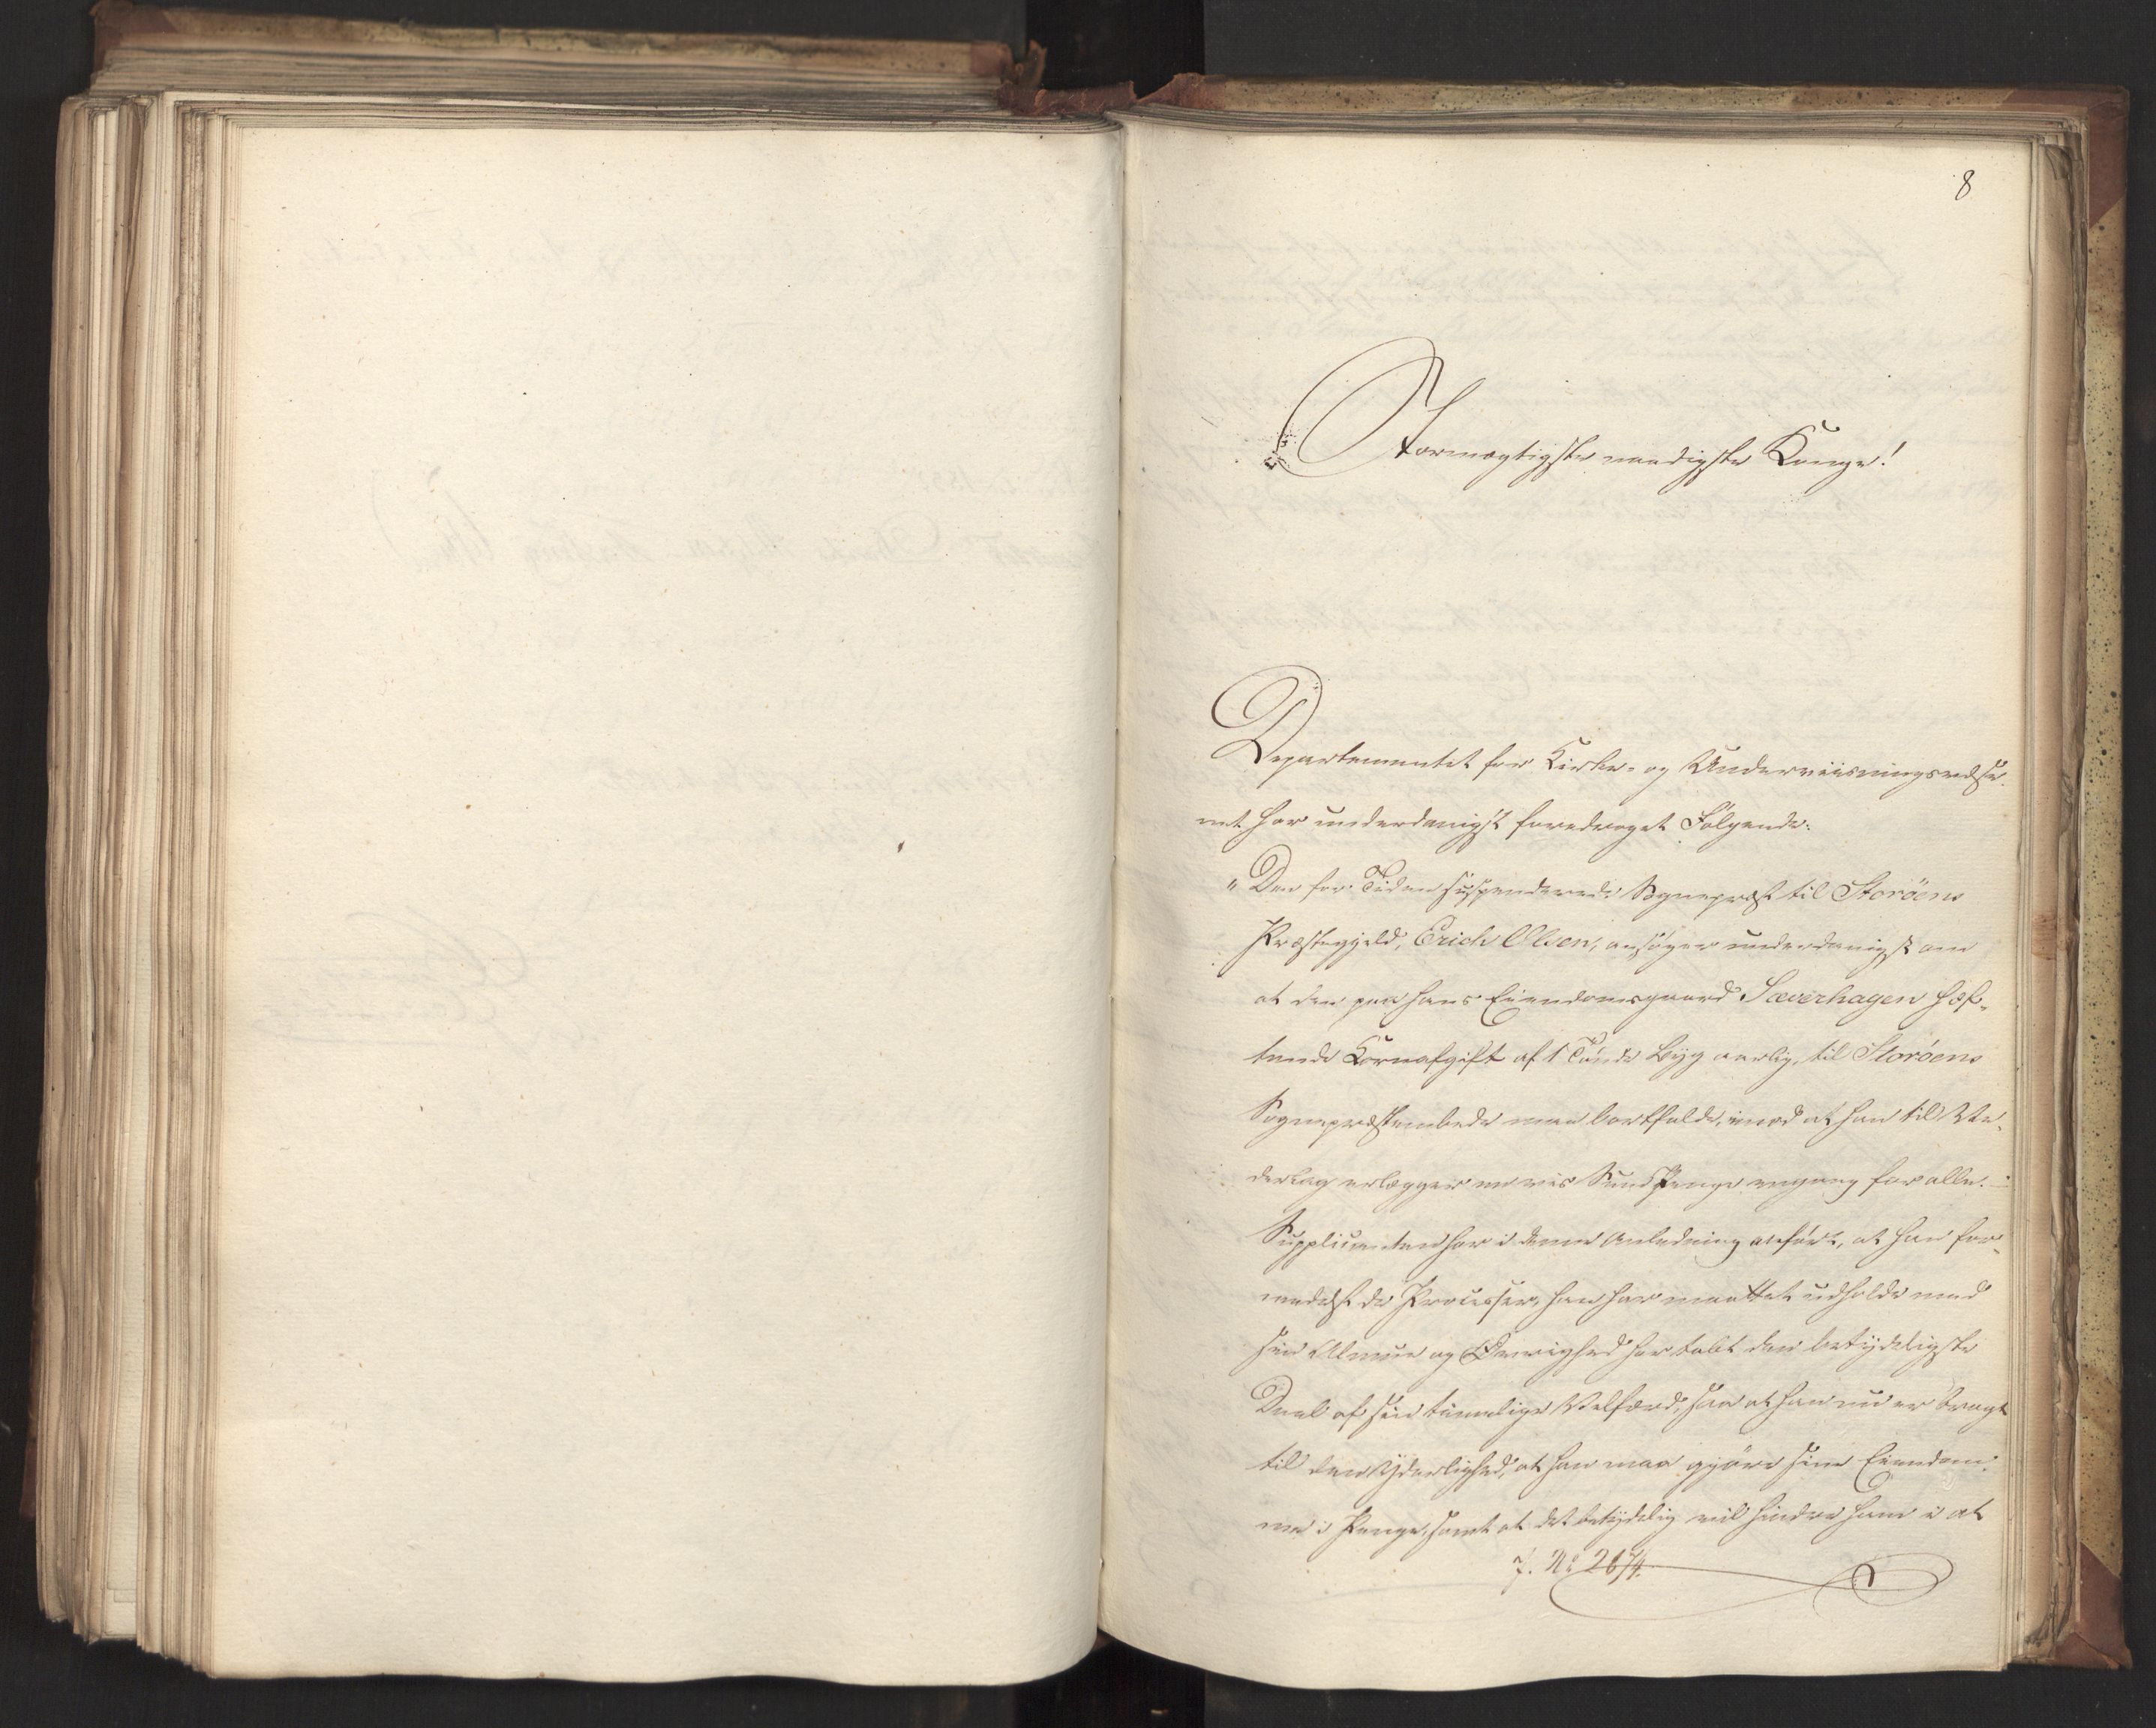 8
Stormægtigste naadigste Konge!
Departementet for Kirke- og Underviisningsvæse-
net har underdanigst foredraget Følgende:
"Den for Tiden suspenderede Sognepræst til Storöens
Præstegjeld, Erich Olsen, ansøger underdanigst om
at den paa hans Eiendomsgaard Sæverhagen hæf-
tende Kornafgift af 1 Tønde Byg aarlig, til Storöens
Sognepræstembede maa bortfalde, imod at han til Ve-
derlag erlægger en vis Sum Penge engang for alle.
Supplicanten har i denne Anledning anført, at han for-
medelst de Processer, han har maattet udholde med
sin Almue og Øvrighed har tabt den betydeligste
Deel af sin timelige Velfærd, saa at han nu er bragt
til den Yderlighed, at han maa gjöre sine Eiendom-
me i Penge, samt at det betydelig vil hindre ham i at
J. No 2674.